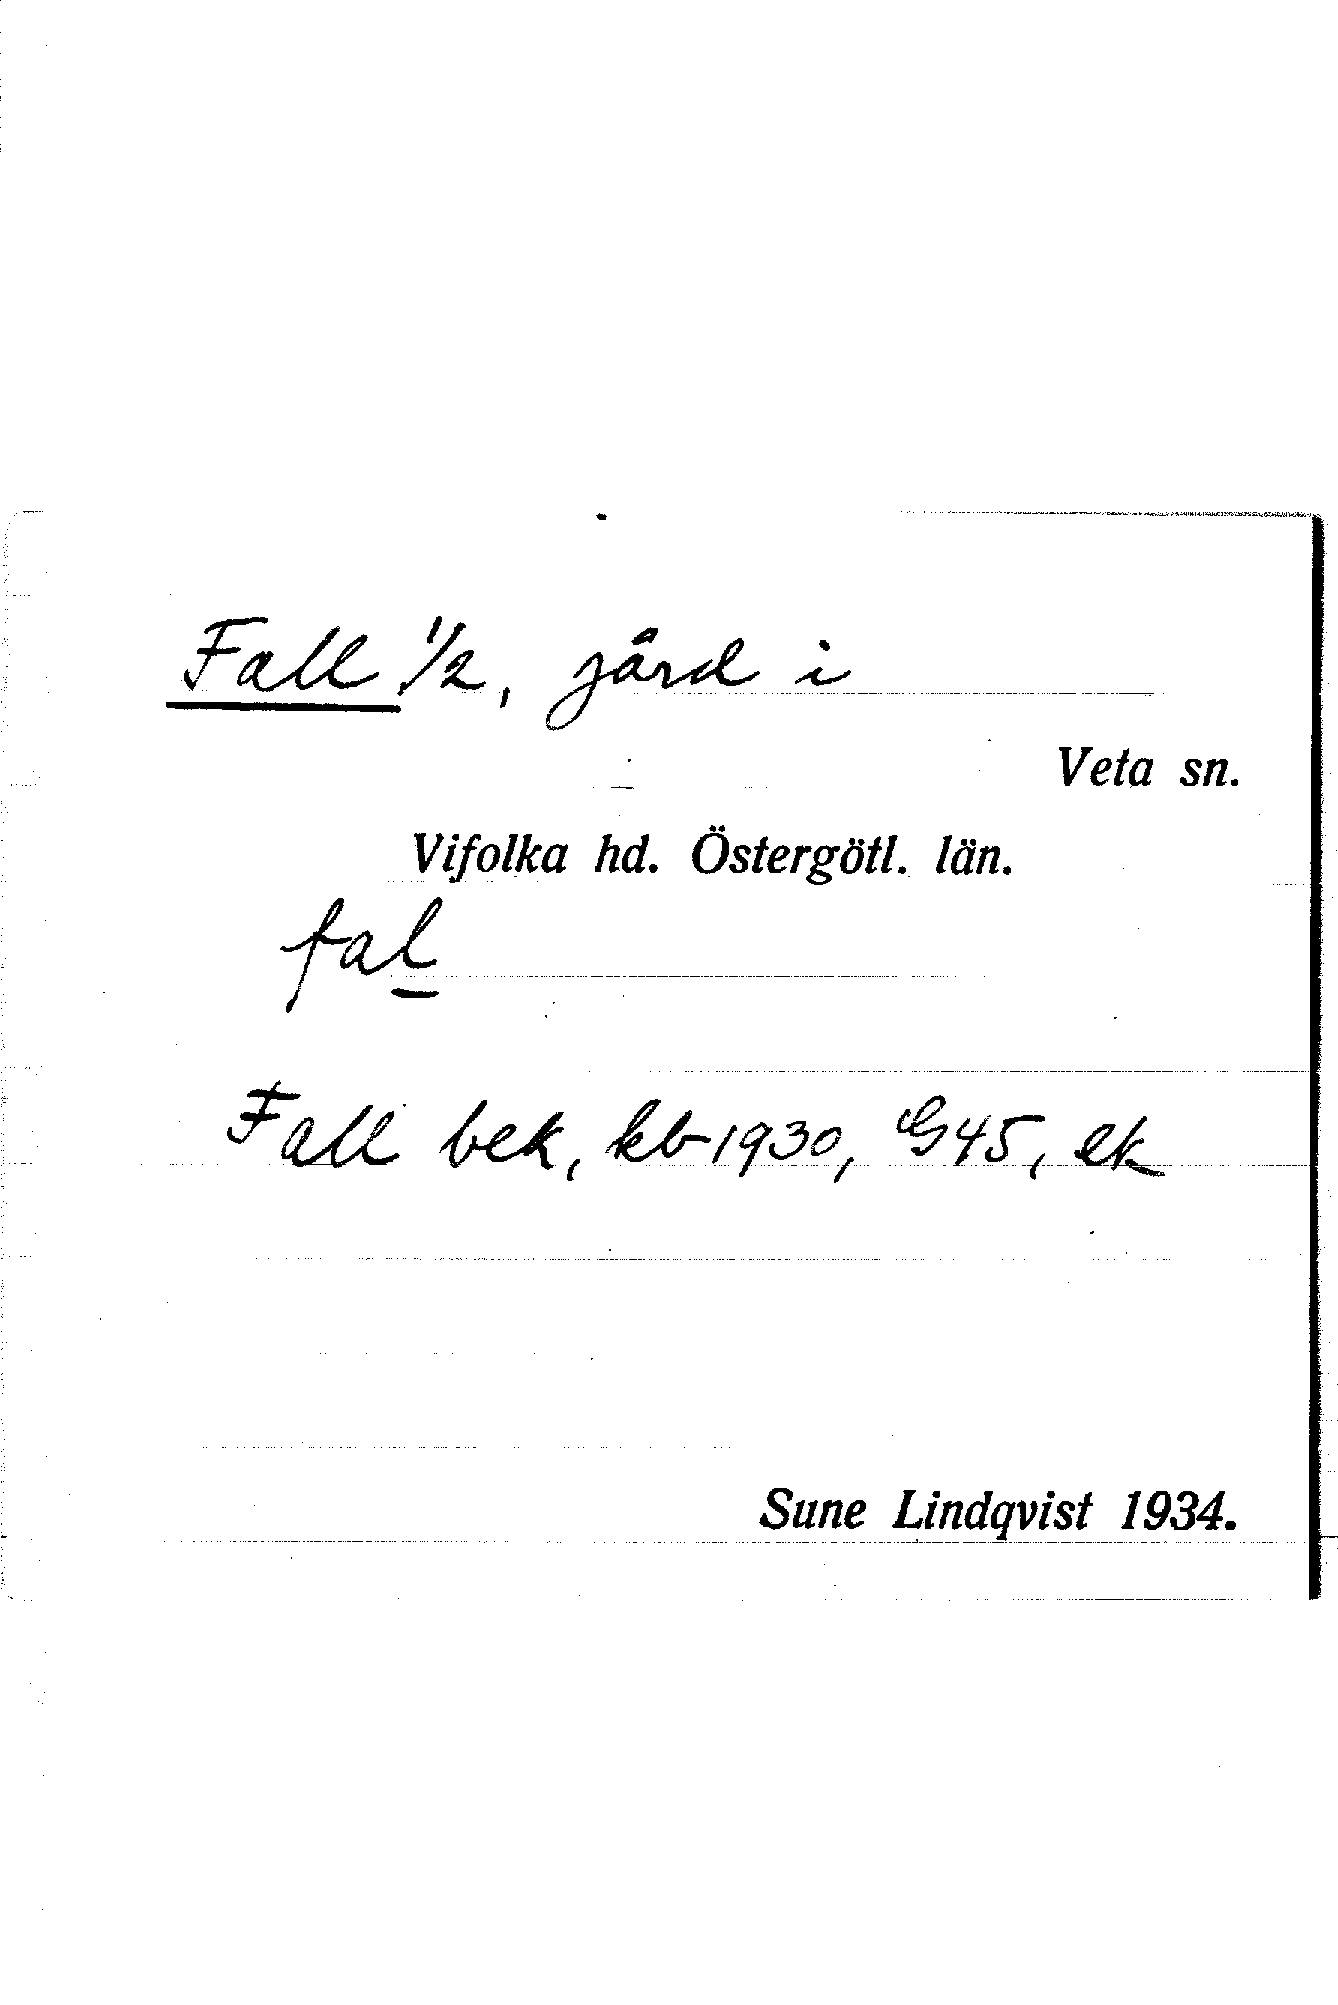 Fall 1/2, gård i
Veta sn.
Vifolka hd. Östergötl. län.
fal
Fall bek, kb 1930, G45, ek
Sune Lindqvist 1934.